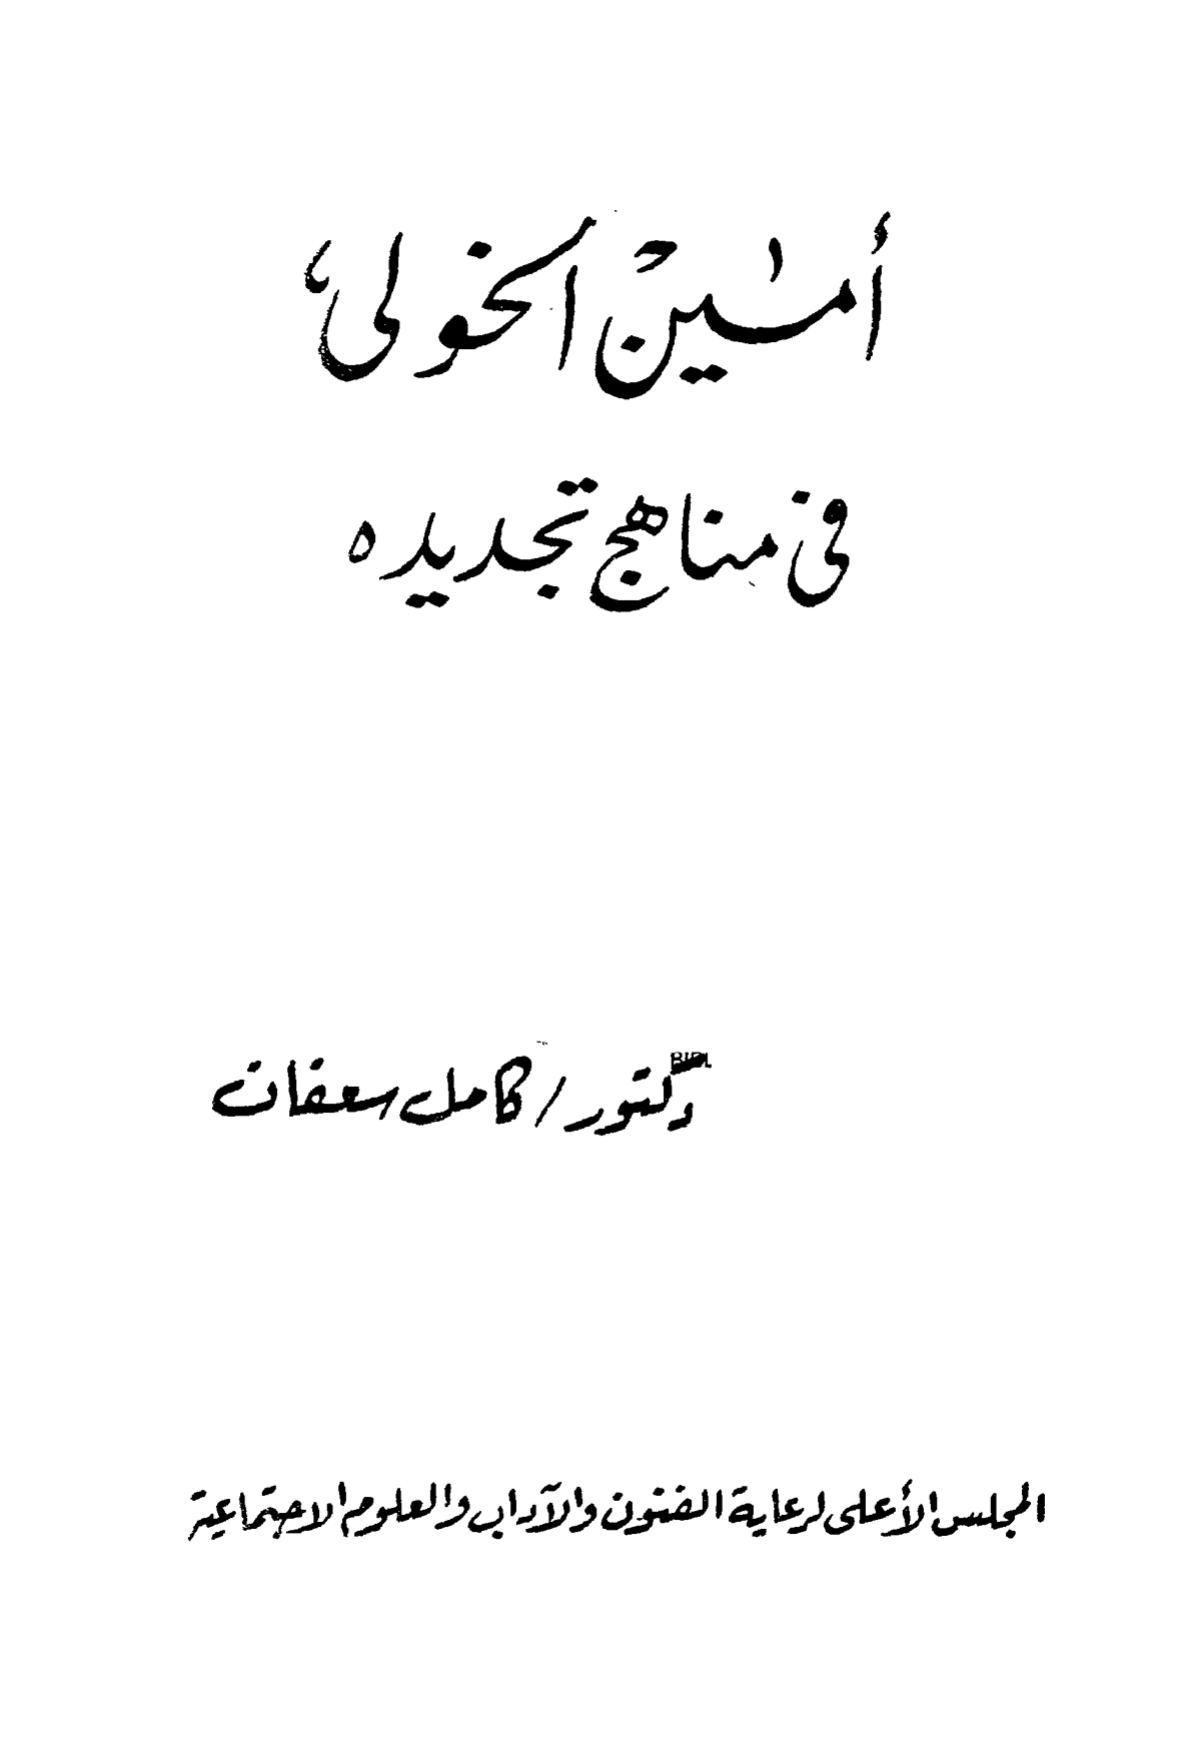 أمين الخولى
فى مناهج تجديده
دكتور / كامل سعفان
المجلس الأعلى لرعاية الفنون والآداب والعلوم الاجتماعية